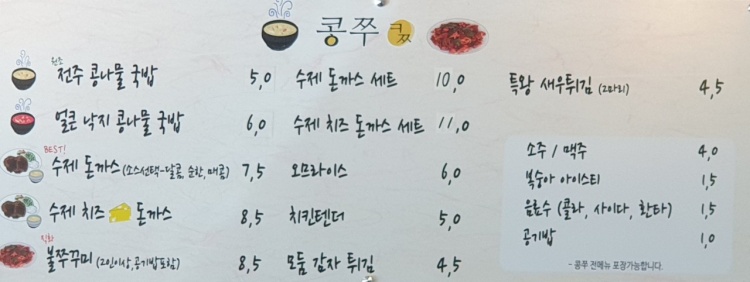 콩쭈 ㅋㅆ
원조
전주 콩나물 국밥 5,0
얼큰 낙지 콩나물 국밥 6,0
BEST!
수제 돈까스 (소스선택-달콤, 순한, 매콤) 7,5
수제 치즈 돈까스 8,5
불쭈꾸미 (2인이상, 공기밥포함) 8,5
수제 돈까스 세트 10,0
수제 치즈 돈까스 세트 11,0
오므라이스 6,0
치킨텐더 5,0
모둠 감자 튀김 4,5
특왕 새우튀김 (2마리) 4,5
소주 / 맥주 4,0
복숭아 아이스티 1,5
음료수 (콜라, 사이다, 환타) 1,5
공기밥 1,0
- 콩쭈 전메뉴 포장가능합니다.